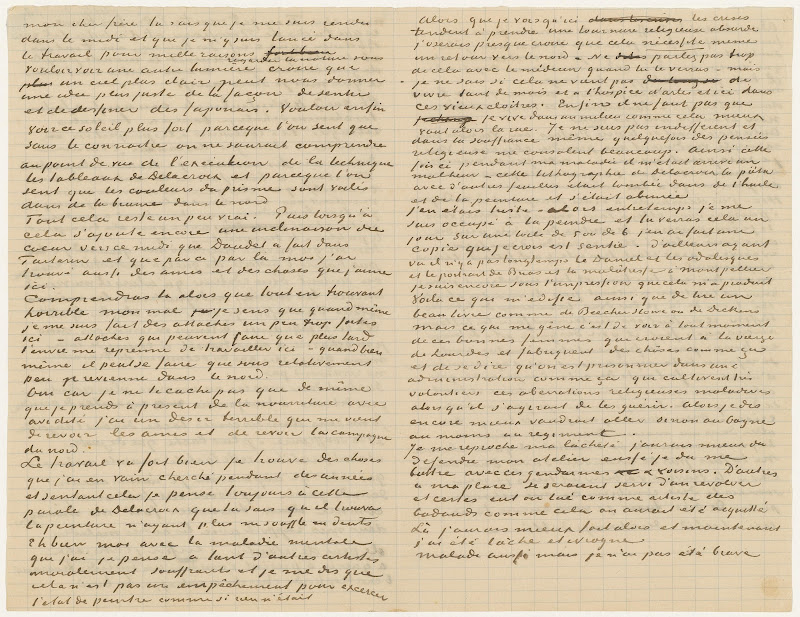 mon cher frère tu sais que je me suis rendu
dans le midi et que je m'y suis lancé dans
le travail pour mille raisons
vouloir voir une autre lumière, croire que regarder la nature sous
un ciel plus clair peut nous donner
une idée plus juste de la façon de sentir
et de dessiner des Japonais. Vouloir enfin
voir ce soleil plus fort parce que l'on sent que
sans le connaître on ne saurait comprendre
au point de vue de l'exécution, de la technique
les tableaux de Delacroix et parce que l'on
sent que les couleurs du prisme sont voilés
dans de la brume dans le nord
Tout cela reste un peu vrai. Puis lorsqu'à
cela s'ajoute encore une inclinaison du
cœur vers ce midi que Daudet a fait dans
Tartarin et que par ci par là moi j'ai
trouvé aussi des amis et des choses que j'aime
ici.
Comprendras tu alors que tout en trouvant
horrible mon mal je sens que quand même
je me suis fait des attaches un peu trop fortes
ici – attaches qui peuvent faire que plus tard
l'envie me reprenne de travailler ici – quand bien
même il peut se faire que sous relativement
peu je revienne dans le nord.
Oui car je ne te cache pas que de même
que je prends à présent de la nourriture avec
avidité j'ai un désir terrible qui me vient
de revoir les amis et de revoir la campagne
du nord.
Le travail va fort bien je trouve des choses
que j'ai en vain cherché pendant des années
et sentant cela je pense toujours à cette
parole de Delacroix que tu sais qu'il trouva
la peinture n'ayant plus ni souffle ni dents
Eh bien moi avec la maladie mentale
que j'ai je pense à tant d'autres artistes
moralement souffrants et je me dis que
cela n'est pas un empêchement pour exercer
l'état de peintre comme si rien n'était
Alors que je vois qu'ici les crises
tendent à prendre une tournure religieuse absurde
j'oserais presque croire que cela nécessite même
un retour vers le nord – ne parles pas trop
de cela avec le médecin quand tu le verras – mais
je ne sais si cela ne vient pas de
vivre tant de mois et à l'hospice d'Arles et ici dans
ces vieux cloîtres. Enfin il ne faut pas que
je vive dans un milieu comme cela mieux
vaut alors la rue. Je ne suis pas indifférent et
dans la souffrance même quelquefois des pensées
religieuses me consolent beaucoup. Ainsi cette
fois ci pendant ma maladie il m'était arrivé un
malheur – cette lithographie de Delacroix la Pieta
avec d'autres feuilles était tombée dans de l'huile
et de la peinture et s'était abimée
j'en étais triste – alors entretemps je me
suis occupé à la peindre et tu verras cela un
jour sur une toile de 5 ou de 6 j'en ai fait une
copie que je crois est sentie. D'ailleurs ayant
vu il n'y a pas longtemps le Daniel et les odalisques
et le portrait de Bruas et la mulatresse à Montpellier
je suis encore sous l'impression que cela m'a produit
Voilà ce qui m'édifie ainsi que de lire un
beau livre comme de Beecher Stowe ou de Dickens
mais ce qui me gêne c'est de voir à tout moment
de ces bonnes femmes qui croient à la vierge
de Lourdes et fabriquent des choses comme ça
et de se dire qu'on est prisonnier dans une
administration comme ça qui cultive très
volontiers ces aberrations religieuses maladives
alors qu'il s'agirait de les guérir. Alors je dis
encore mieux vaudrait aller sinon au bagne
au moins au régiment.
Je me reproche ma lâcheté j'aurais mieux dû
défendre mon atelier eussé je dû me
battre avec ces gendarmes & voisins. D'autres
à ma place se seraient servi d'un revolver
et certes eut on tué comme artiste des
badauds comme cela on aurait été acquitté
Là j'aurais mieux fait alors et maintenant
j'ai été lâche et ivrogne
Malade aussi mais je n'ai pas été brave